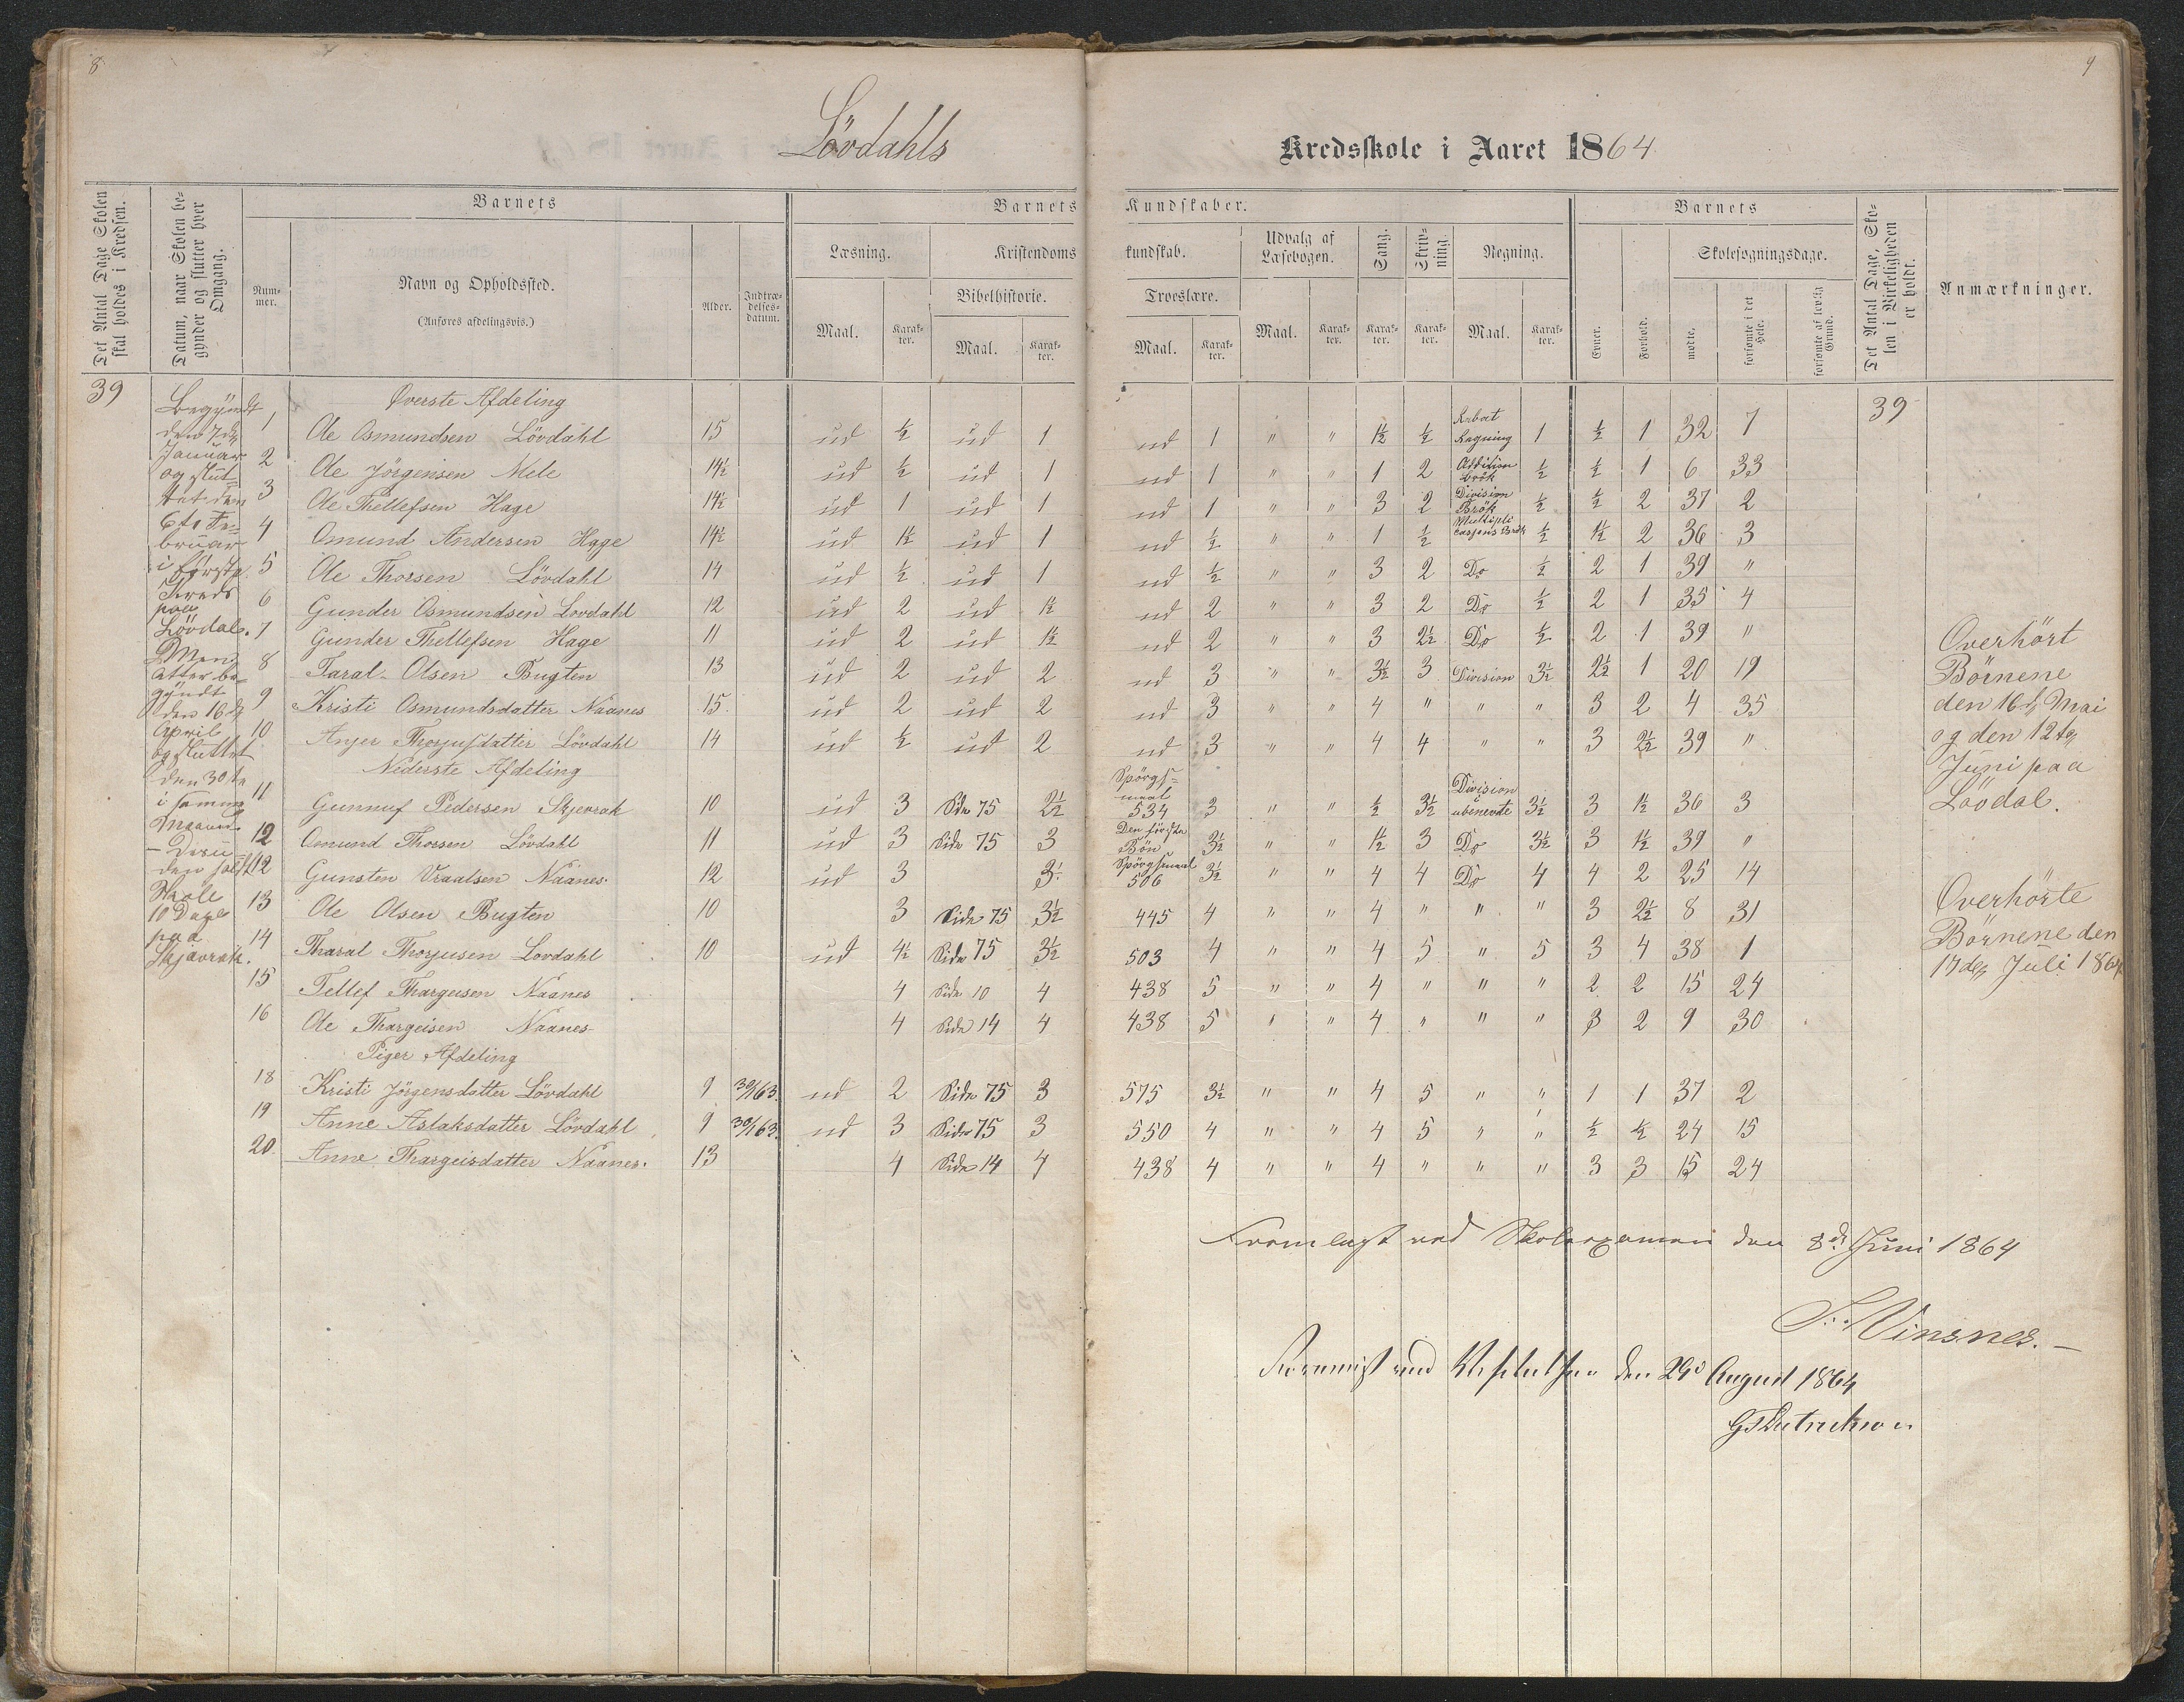 8
9
Lövdahls
Kredsskole i Aaret 1864
Det Antal Dage Skolen skal holdes i Kredsen.
Datum, naar Skolen begynder og slutter hver Omgang.
Barnets
Nummer.
Navn og Opholdssted.
(Anføres afdelingsvis.)
Alder.
Indtrædelsesdatum.
Barnets Kundskaber.
Læsning.
Maal.
Karakter.
Kristendomskundskab.
Bibelhistorie.
Maal.
Karakter.
Troeslære.
Maal.
Karakter.
Udvalg af Læsebogen.
Maal.
Karakter.
Sang.
Karakter.
Skrivning.
Karakter.
Regning.
Maal.
Karakter.
Barnets
Evner.
Forhold.
Skolesøgningsdage.
mødte.
forsømte i det Hele.
forsømte af lovlig Grund.
Det Antal Dage, Skolen i Virkeligheden er holdt.
Anmærkninger.
39
Begyndt
den 7de
Januar
og slut-
tet den
6te Fe-
bruar
i første
Kreds
paa
Lövdal.
Men
atter be-
gyndt
den 16de
April
og sluttet
den 30te
i samme
Maaned
Skole
10 Dage
paa
Skjævrak.
Øverste Afdeling
1 Ole Osmundsen Lövdahl 15 ud ½ ud 1 ud 1 " " 1½ ½ Rabat Regning 1 ½ 1 32 7 39
2 Ole Jörgensen Mele 14½ ud ½ ud 1 ud 1 " " 1 2 Addition Brök ½ ½ 1 6 33
3 Ole Thellefsen Hage 14½ ud 1 ud 1 ud 1 " " 3 2 Division Brök ½ ½ 2 37 2
4 Omund Andersen Hage 14½ ud 1½ ud 1 ud ½ " " 1 ½ Multiplicasjons Brök ½ 1½ 2 36 3
5 Ole Thorsen Lövdahl 14 ud ½ ud 1 ud ½ " " 3 2 Do ½ 2 1 39 "
6 Gunder Osmundsen Lovdahl 12 ud 2 ud 1½ ud 2 " " 3 2 Do ½ 2 1 35 4
7 Gunder Thellefsen Hage 11 ud 2 ud 1½ ud 2 " " 3 2½ Do ½ 2 1 39 "
8 Taral Olsen Bugten 13 ud 2 ud 2 ud 3 " " 3½ 3 Division 3½ 2½ 1 20 19
9 Kristi Osmundsdatter Naanes 15 ud 2 ud 2 ud 3 " " 4 " " " 3 2 4 35
10 Anjer Thorjusdatter Lövdahl 14 ud ½ ud 2 ud 3 " " 4 4 " " 3 2½ 39 "
Nederste Afdeling
11 Gunnuf Pedersen Skjevrak 10 ud 3 Side 75 2½ Spörgsmaal 534 3 " " ½ 3½ Division ubenevte 3½ 3 1½ 36 3
12 Osmund Thorsen Lövdahl 11 ud 3 Side 75 3 Den förste Bön 3½ " " 1½ 3 Do 3½ 3 1½ 39 "
12 Gunsten Vraalsen Naanes 12 ud 3 3½ Spörgsmaal 506 3½ " " 4 4 Do 4 4 2 25 14
13 Ole Olsen Bugten 10 3 Side 75 3½ 445 4 " " 4 " " " 3 2½ 8 31
14 Tharal Thorjusen Lovdahl 10 ud 4½ Side 75 3½ 503 4 " " 4 5 " 5 3 4 38 1
15 Tellef Thargeisen Naanes 4 Side 10 4 438 5 " " 4 " " " 2 2 15 24
16 Ole Thargeisen Naanes 4 Side 14 4 438 5 " " 4 " " " 3 2 9 30
Piger Afdeling
18 Kristi Jörgensdatter Lövdahl 9 30/1 63. ud 2 Side 75 3 575 3½ " " 4 5 " " 1 1 37 2
19 Anne Aslaksdatter Lövdahl 9 30/1 63. ud 3 Side 75 3 550 4 " " 4 5 " " ½ ½ 24 15
20 Anne Thargeisdatter Naanes 13 4 Side 14 4 438 4 " " 4 " " " 3 3 15 24
Overhört
Börnene
den 16de Mai
og den 12te
Juni paa
Lövdal.
Overhörte
Börnene den
17de Juli 1864
Fremlagt ved Skoleexamen den 8de Juni 1864
Vinsnes.
ved den 29de August 1864